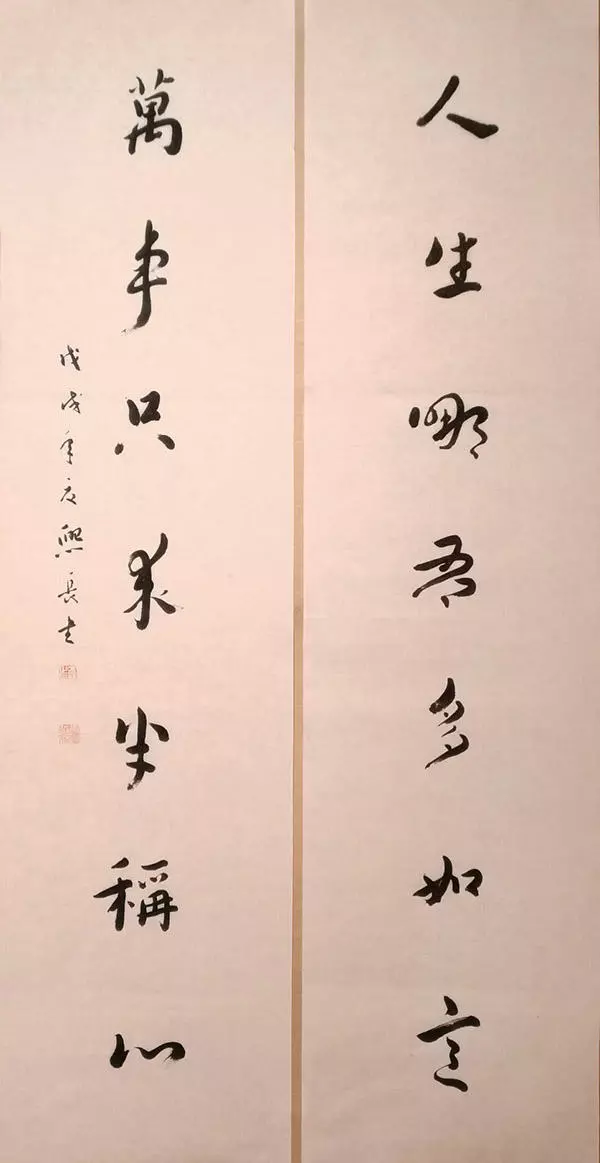 人生哪能多如意
萬事只求半稱心
戊戌年夏熙長